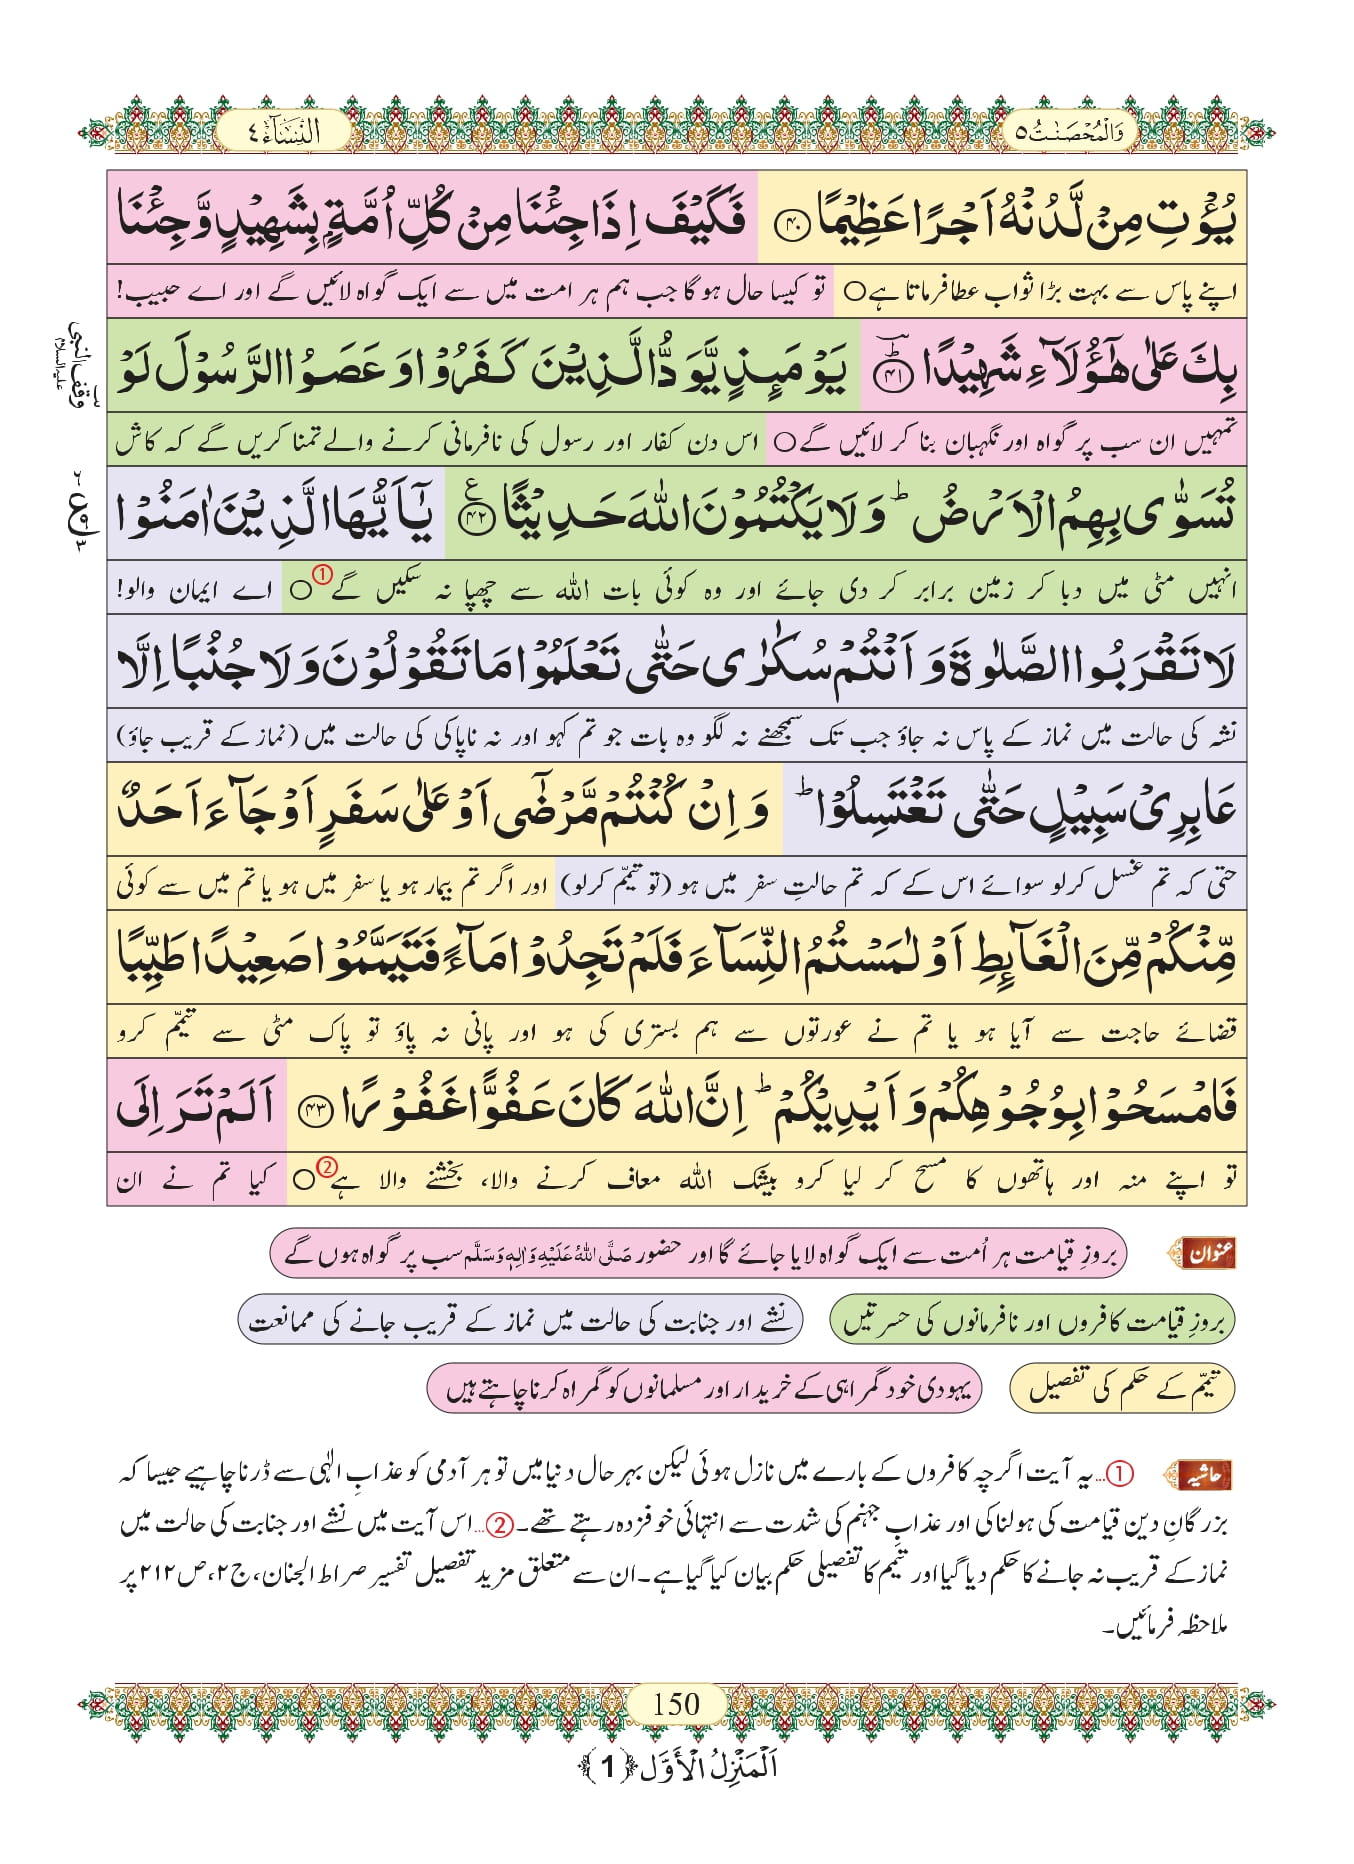 وَالْمُحْصَنٰتُ ٥
النِّسَآء ٤
يُؤْتِ مِنْ لَّدُنْهُ اَجْرًا عَظِيْمًا ﴿۴۰﴾ فَكَيْفَ اِذَا جِئْنَا مِنْ كُلِّ اُمَّةٍۭ بِشَهِيْدٍ وَّ جِئْنَا
اپنے پاس سے بہت بڑا ثواب عطا فرماتا ہے○ تو کیسا حال ہو گا جب ہم ہر امت میں سے ایک گواہ لائیں گے اور اے حبیب!
بِكَ عَلٰى هٰۤؤُلَآءِ شَهِيْدًا ﴿ؕ۴۱﴾ يَوْمَىِٕذٍ يَّوَدُّ الَّذِيْنَ كَفَرُوْا وَ عَصَوُا الرَّسُوْلَ لَوْ
وقف النبی علیہ السلام
تمہیں ان سب پر گواہ اور نگہبان بنا کر لائیں گے○ اس دن کفار اور رسول کی نافرمانی کرنے والے تمنا کریں گے کہ کاش
تُسَوّٰى بِهِمُ الْاَرْضُ ؕ وَ لَا يَكْتُمُوْنَ اللّٰهَ حَدِيْثًا ﴿۴۲﴾ يٰۤاَيُّهَا الَّذِيْنَ اٰمَنُوْا
انہیں مٹی میں دبا کر زمین برابر کر دی جائے اور وہ کوئی بات اللہ سے چھپا نہ سکیں گے①○ اے ایمان والو!
لَا تَقْرَبُوا الصَّلٰوةَ وَ اَنْتُمْ سُكٰرٰى حَتّٰى تَعْلَمُوْا مَا تَقُوْلُوْنَ وَ لَا جُنُبًا اِلَّا
نشہ کی حالت میں نماز کے پاس نہ جاؤ جب تک سمجھنے نہ لگو وہ بات جو تم کہو اور نہ ناپاکی کی حالت میں (نماز کے قریب جاؤ)
عَابِرِيْ سَبِيْلٍ حَتّٰى تَغْتَسِلُوْا ؕ وَ اِنْ كُنْتُمْ مَّرْضٰۤى اَوْ عَلٰى سَفَرٍ اَوْ جَآءَ اَحَدٌ
حتی کہ تم غسل کرلو سوائے اس کے کہ تم حالتِ سفر میں ہو (تو تیمّم کرلو) اور اگر تم بیمار ہو یا سفر میں ہو یا تم میں سے کوئی
مِّنْكُمْ مِّنَ الْغَآىِٕطِ اَوْ لٰمَسْتُمُ النِّسَآءَ فَلَمْ تَجِدُوْا مَآءً فَتَيَمَّمُوْا صَعِيْدًا طَيِّبًا
قضائے حاجت سے آیا ہو یا تم نے عورتوں سے ہم بستری کی ہو اور پانی نہ پاؤ تو پاک مٹی سے تیمّم کرو
فَامْسَحُوْا بِوُجُوْهِكُمْ وَ اَيْدِيْكُمْ ؕ اِنَّ اللّٰهَ كَانَ عَفُوًّا غَفُوْرًا ﴿۴۳﴾ اَلَمْ تَرَ اِلَى
تو اپنے منہ اور ہاتھوں کا مسح کر لیا کرو بیشک اللہ معاف کرنے والا، بخشنے والا ہے②○ کیا تم نے ان
عنوان بروزِ قیامت ہر اُمت سے ایک گواہ لایا جائے گا اور حضور صَلَّی اللہُ عَلَیْہِ وَاٰلِہٖ وَسَلَّم سب پر گواہ ہوں گے
بروزِ قیامت کافروں اور نافرمانوں کی حسرتیں نشے اور جنابت کی حالت میں نماز کے قریب جانے کی ممانعت
تیمّم کے حکم کی تفصیل یہودی خود گمراہی کے خریدار اور مسلمانوں کو گمراہ کرنا چاہتے ہیں
حاشیہ ①...یہ آیت اگرچہ کافروں کے بارے میں نازل ہوئی لیکن بہرحال دنیا میں تو ہر آدمی کو عذابِ الٰہی سے ڈرنا چاہیے جیسا کہ
بزرگانِ دین قیامت کی ہولناکی اور عذابِ جہنم کی شدت سے انتہائی خوفزدہ رہتے تھے۔②...اس آیت میں نشے اور جنابت کی حالت میں
نماز کے قریب نہ جانے کا حکم دیا گیا اور تیمّم کا تفصیلی حکم بیان کیا گیا ہے۔ان سے متعلق مزید تفصیل تفسیر صراط الجنان، ج۲، ص۲۱۲ پر
ملاحظہ فرمائیں۔
150
اَلْمَنْزِلُ الْاَوَّل ﴿1﴾